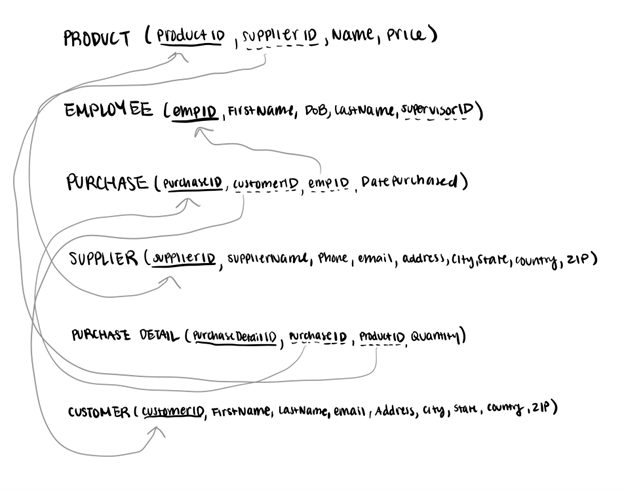 PRODUCT (ProductID, SupplierID, Name, Price)
EMPLOYEE (empID, FirstName, DoB, LastName, SupervisorID)
PURCHASE (PurchaseID, customerID, empID, DatePurchased)
SUPPLIER (SupplierID, SupplierName, Phone, email, address, City, State, country, ZIP)
PURCHASE DETAIL (PurchaseDetailID, PurchaseID, ProductID, Quantity)
CUSTOMER (customerID, FirstName, LastName, email, Address, City, State, country, ZIP)